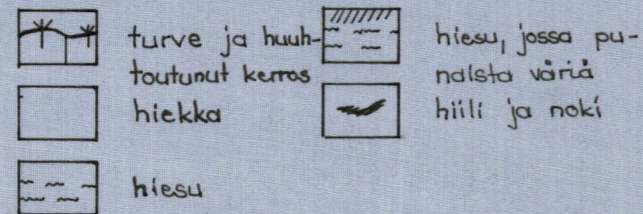 turve ja huuh-
toutunut kerros
hiekka
hiesu
hiesu, jossa pu-
naista väriä
hiili ja noki